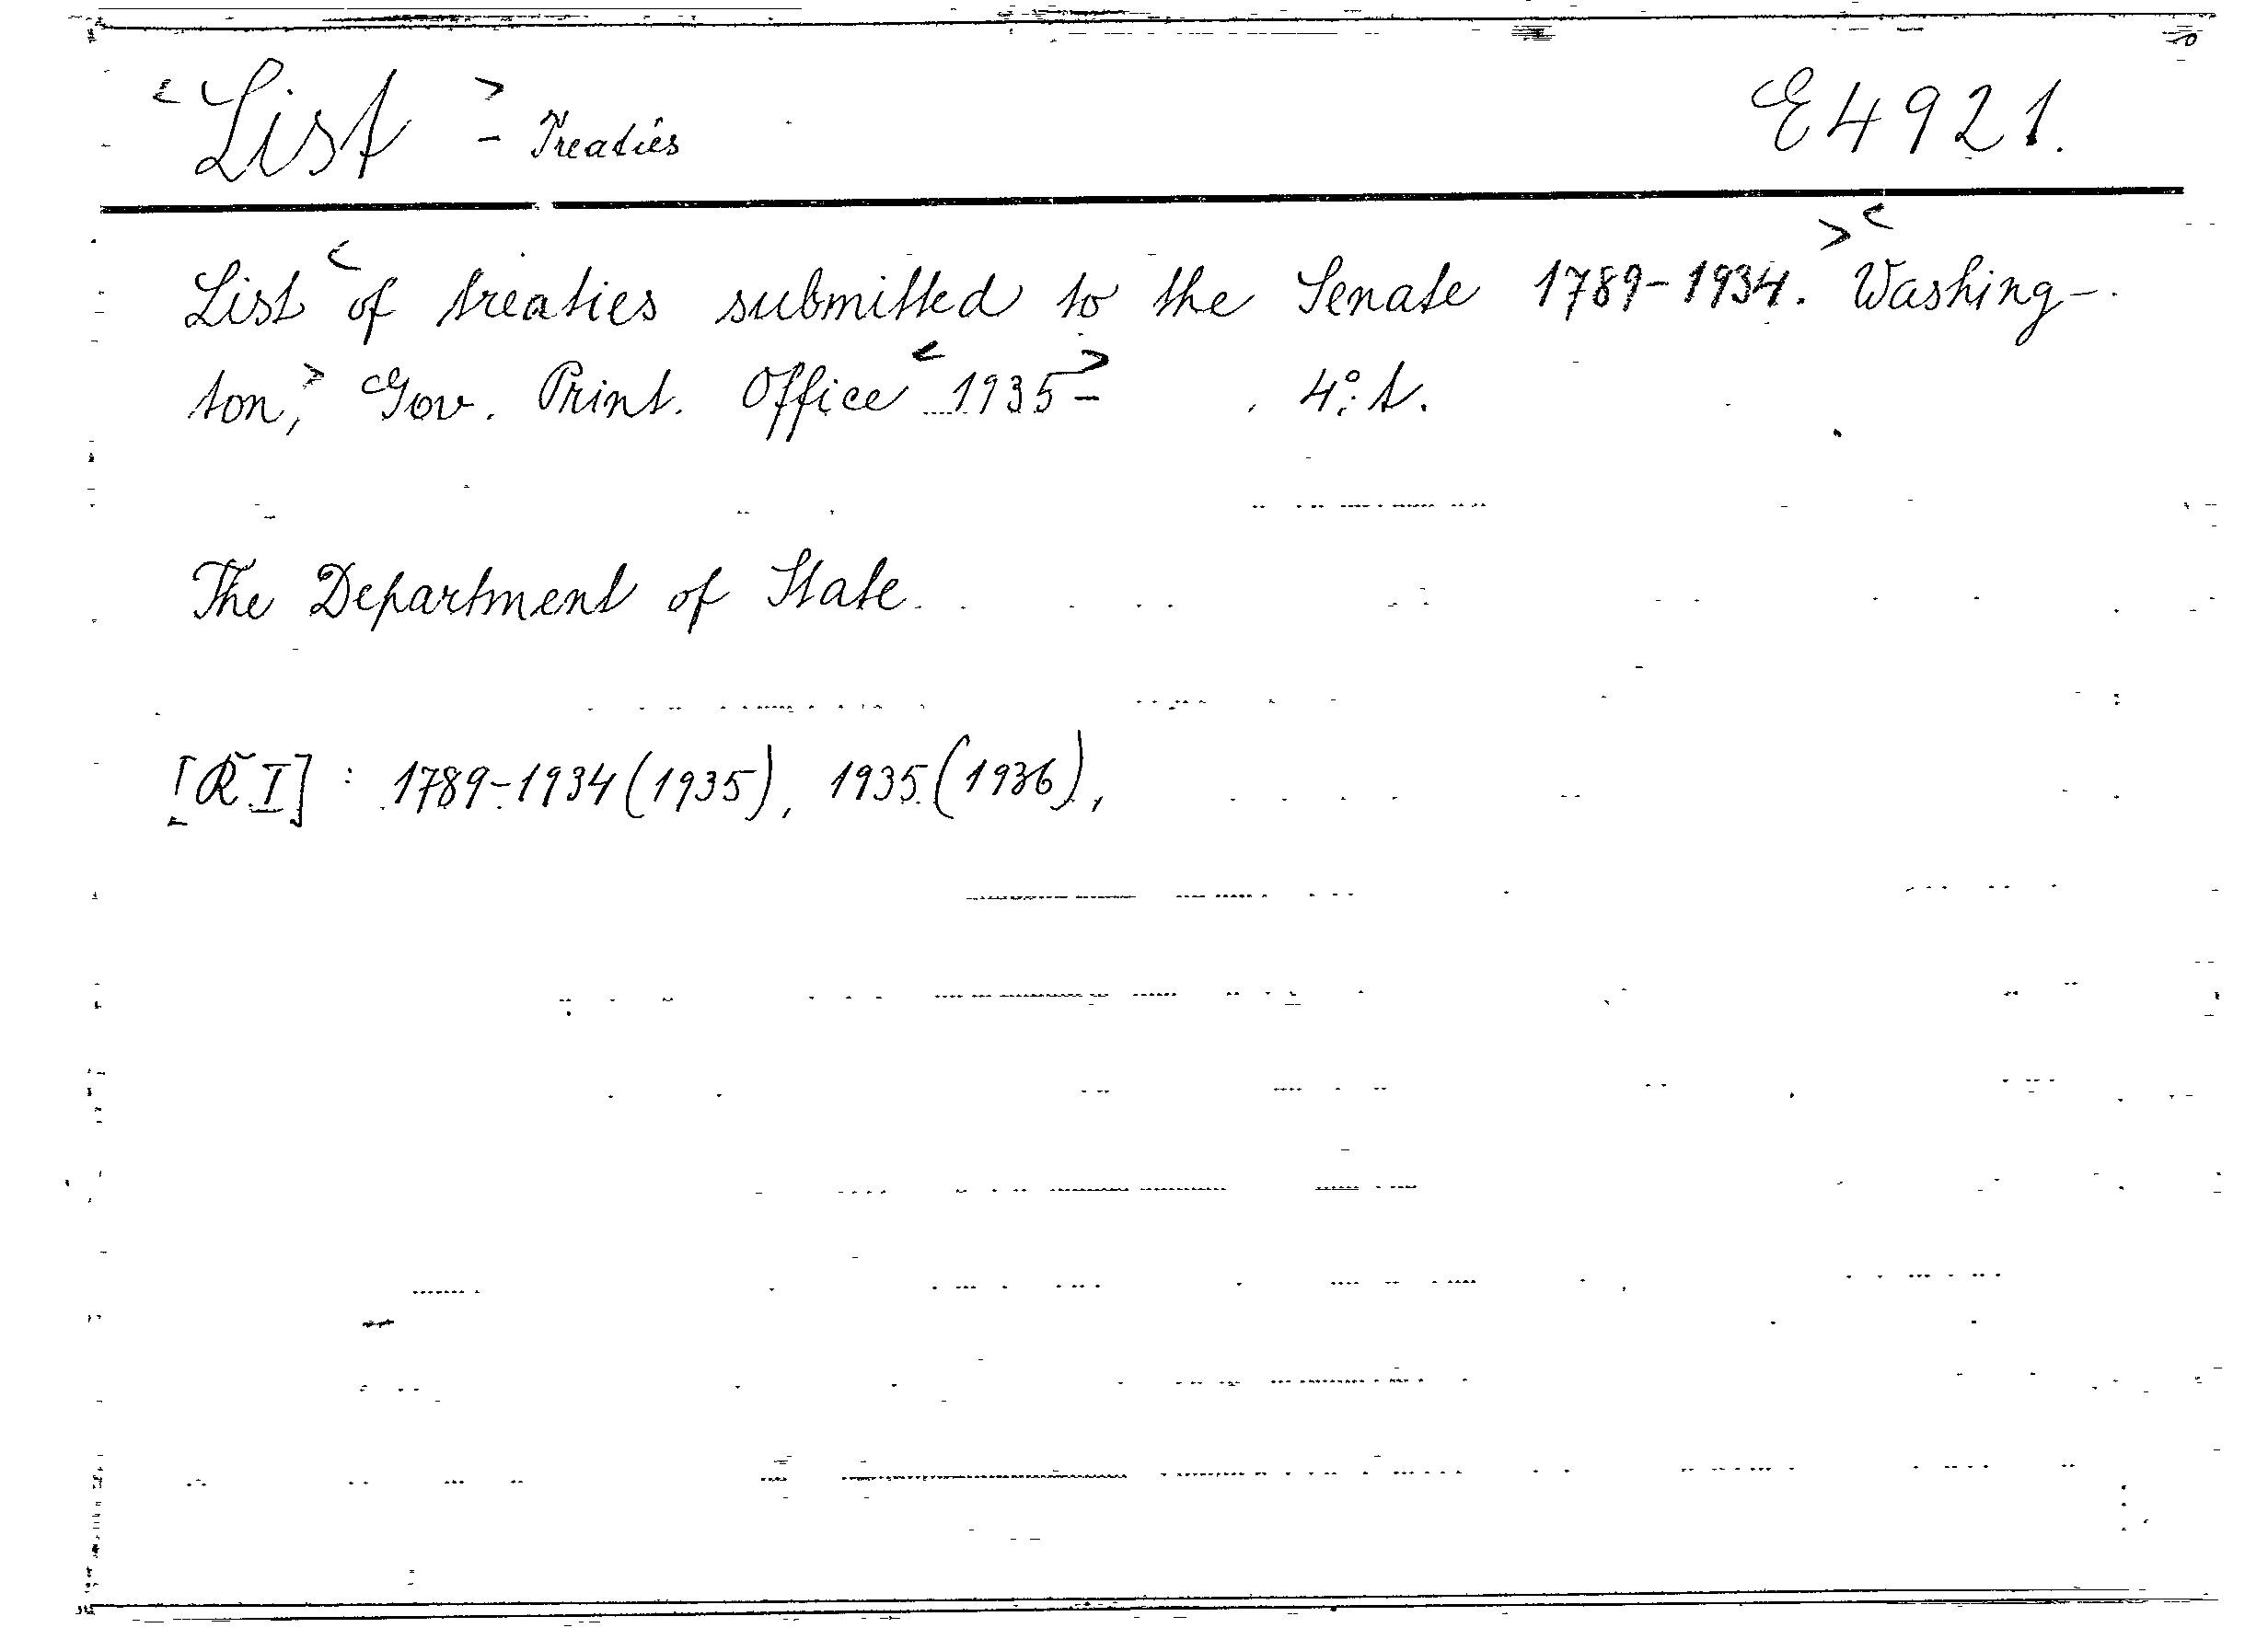 <List> - Treaties E4921.
List <of treaties submitted to the Senate 1789-1934.> <Washing-
ton,> Gov. Print. Office <1935-> 4°: t.
The Department of State.
[R I] : 1789-1934 (1935), 1935 (1936),